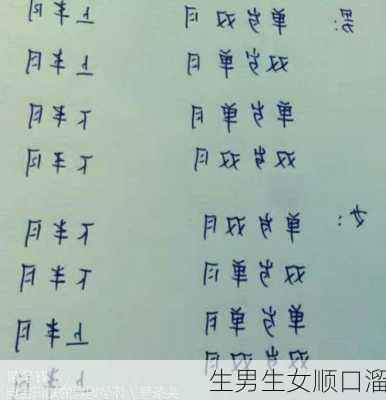 男:
单岁双月 上半月
双岁单月 上半月
单岁单月 下半月
双岁双月 下半月
女:
单岁双月 下半月
双岁单月 下半月
单岁单月 上半月
双岁双月 上半月
头条号/怀孕
生男生女顺口溜